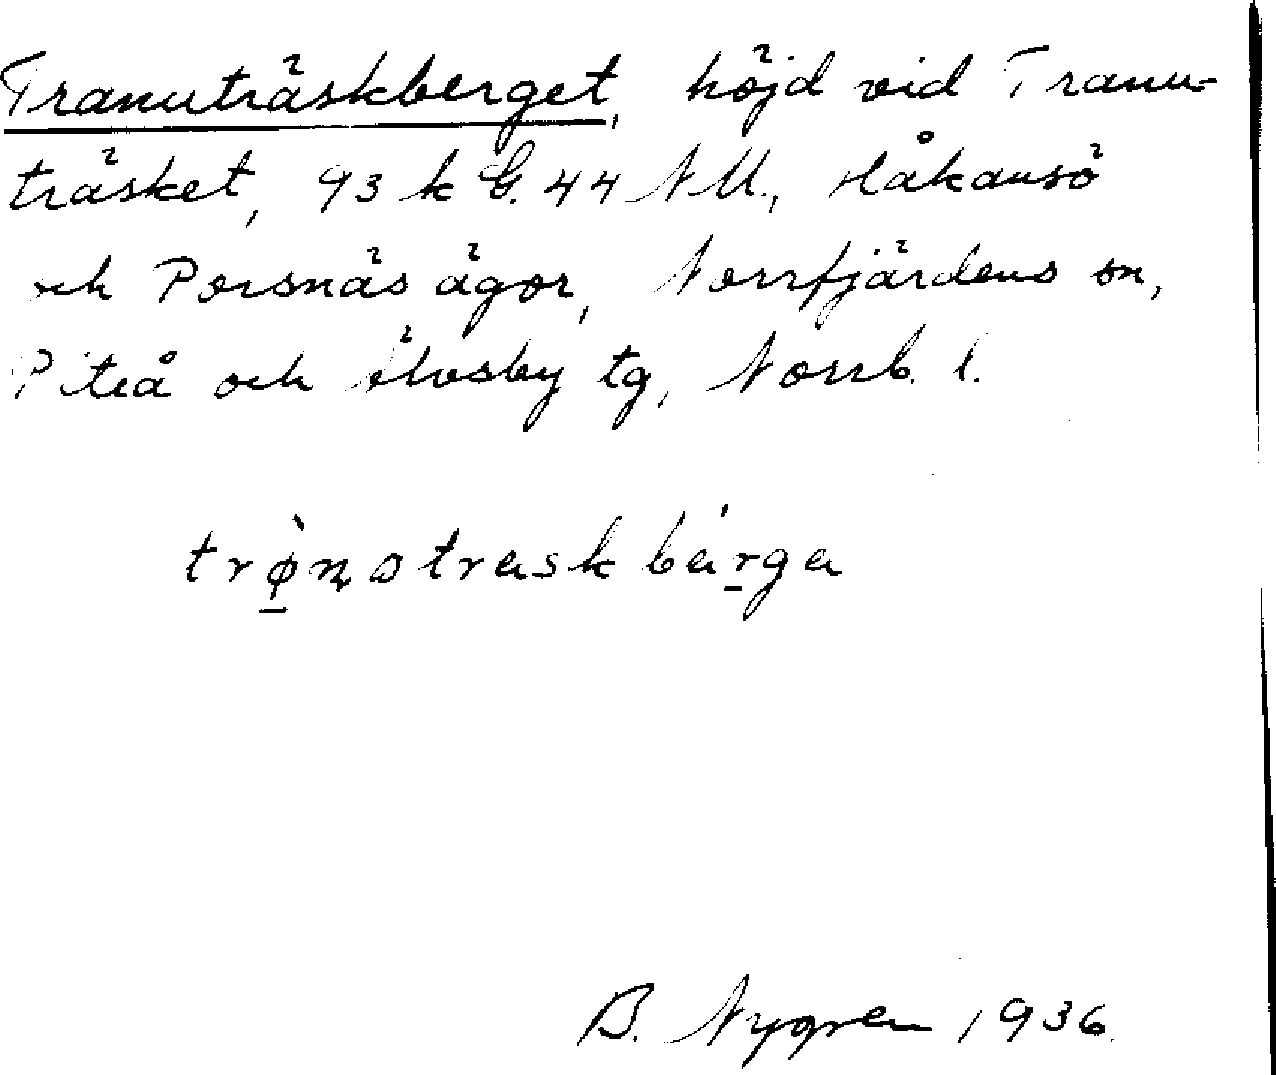 Tranuträskberget, höjd vid Tranu-
träsket, 93 k G. 44 NM., Håkansö
och Porsnäs ägor, Norrfjärdens sn,
Piteå och Älvsby tg, Norrb. l.
trø̀notraskbárga
B. Nygren 1936.